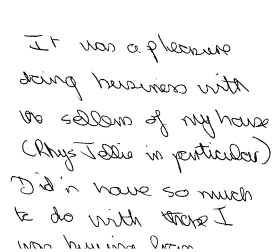 It was a pleasure
doing business with
the sellers of my house
(Rhys Jollie in particular)
Did'n have so much
to do with there I
was buying from